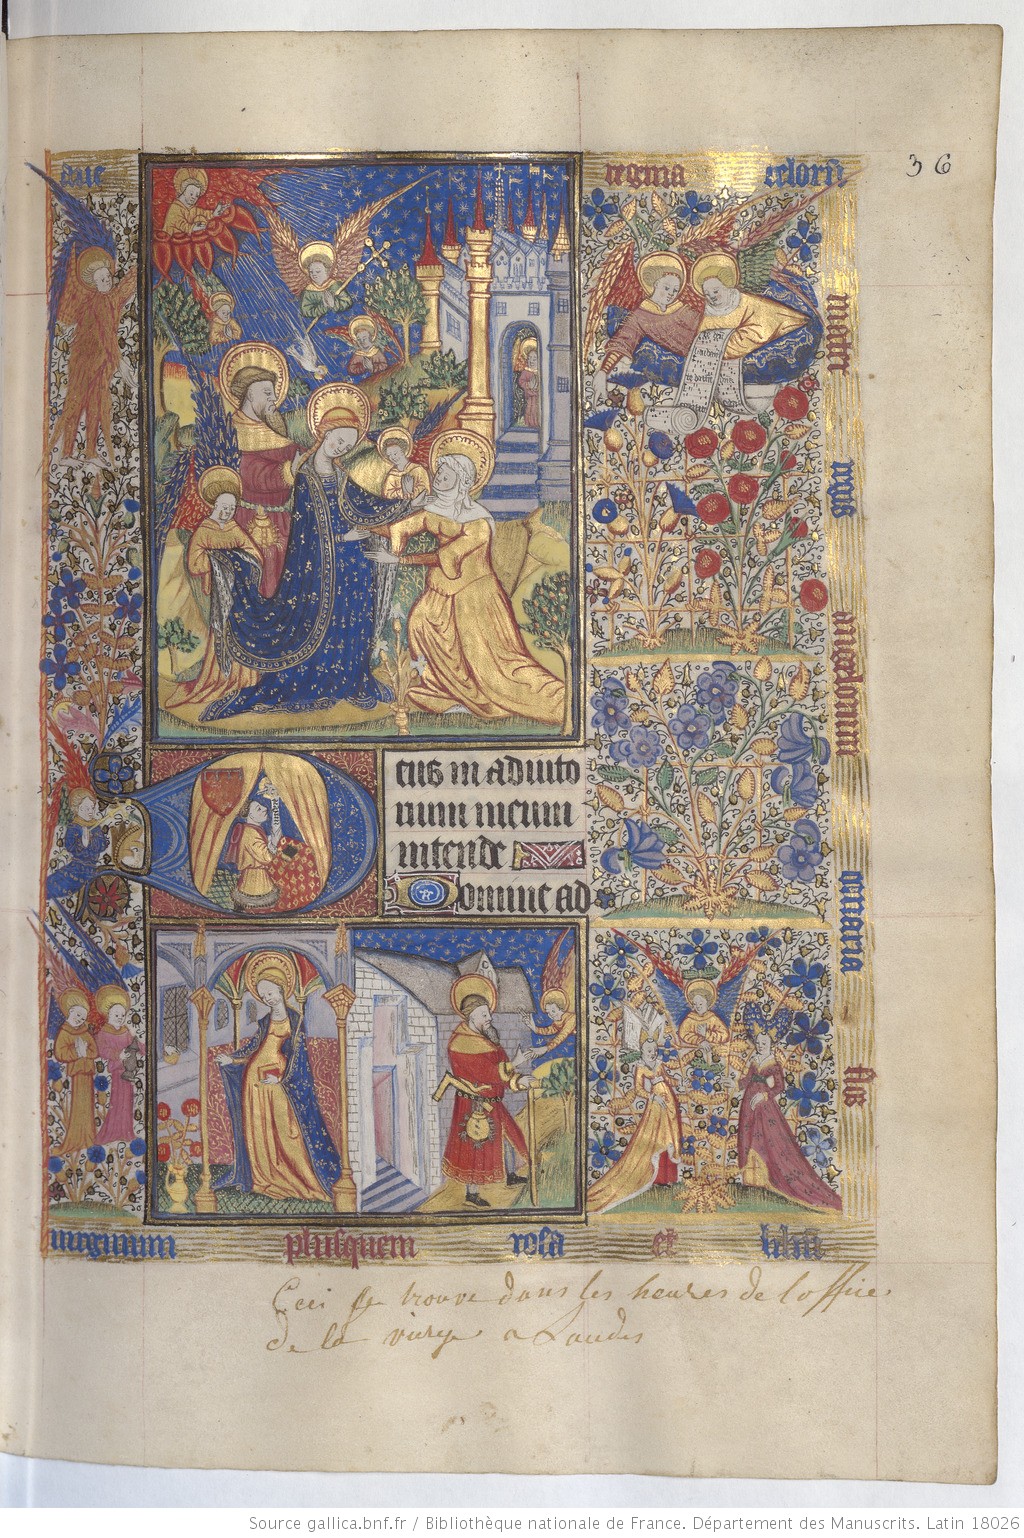 aue regina celorū
36
mater regis angelorum
o maria flos
eus in adiuto
rium meum
intende
Domine ad
uirginum plusquem rosa et liliū
Ceci se trouve dans les heures de l'office
de la vierge a Laudes
Source gallica.bnf.fr / Bibliothèque nationale de France. Département des Manuscrits. Latin 18026